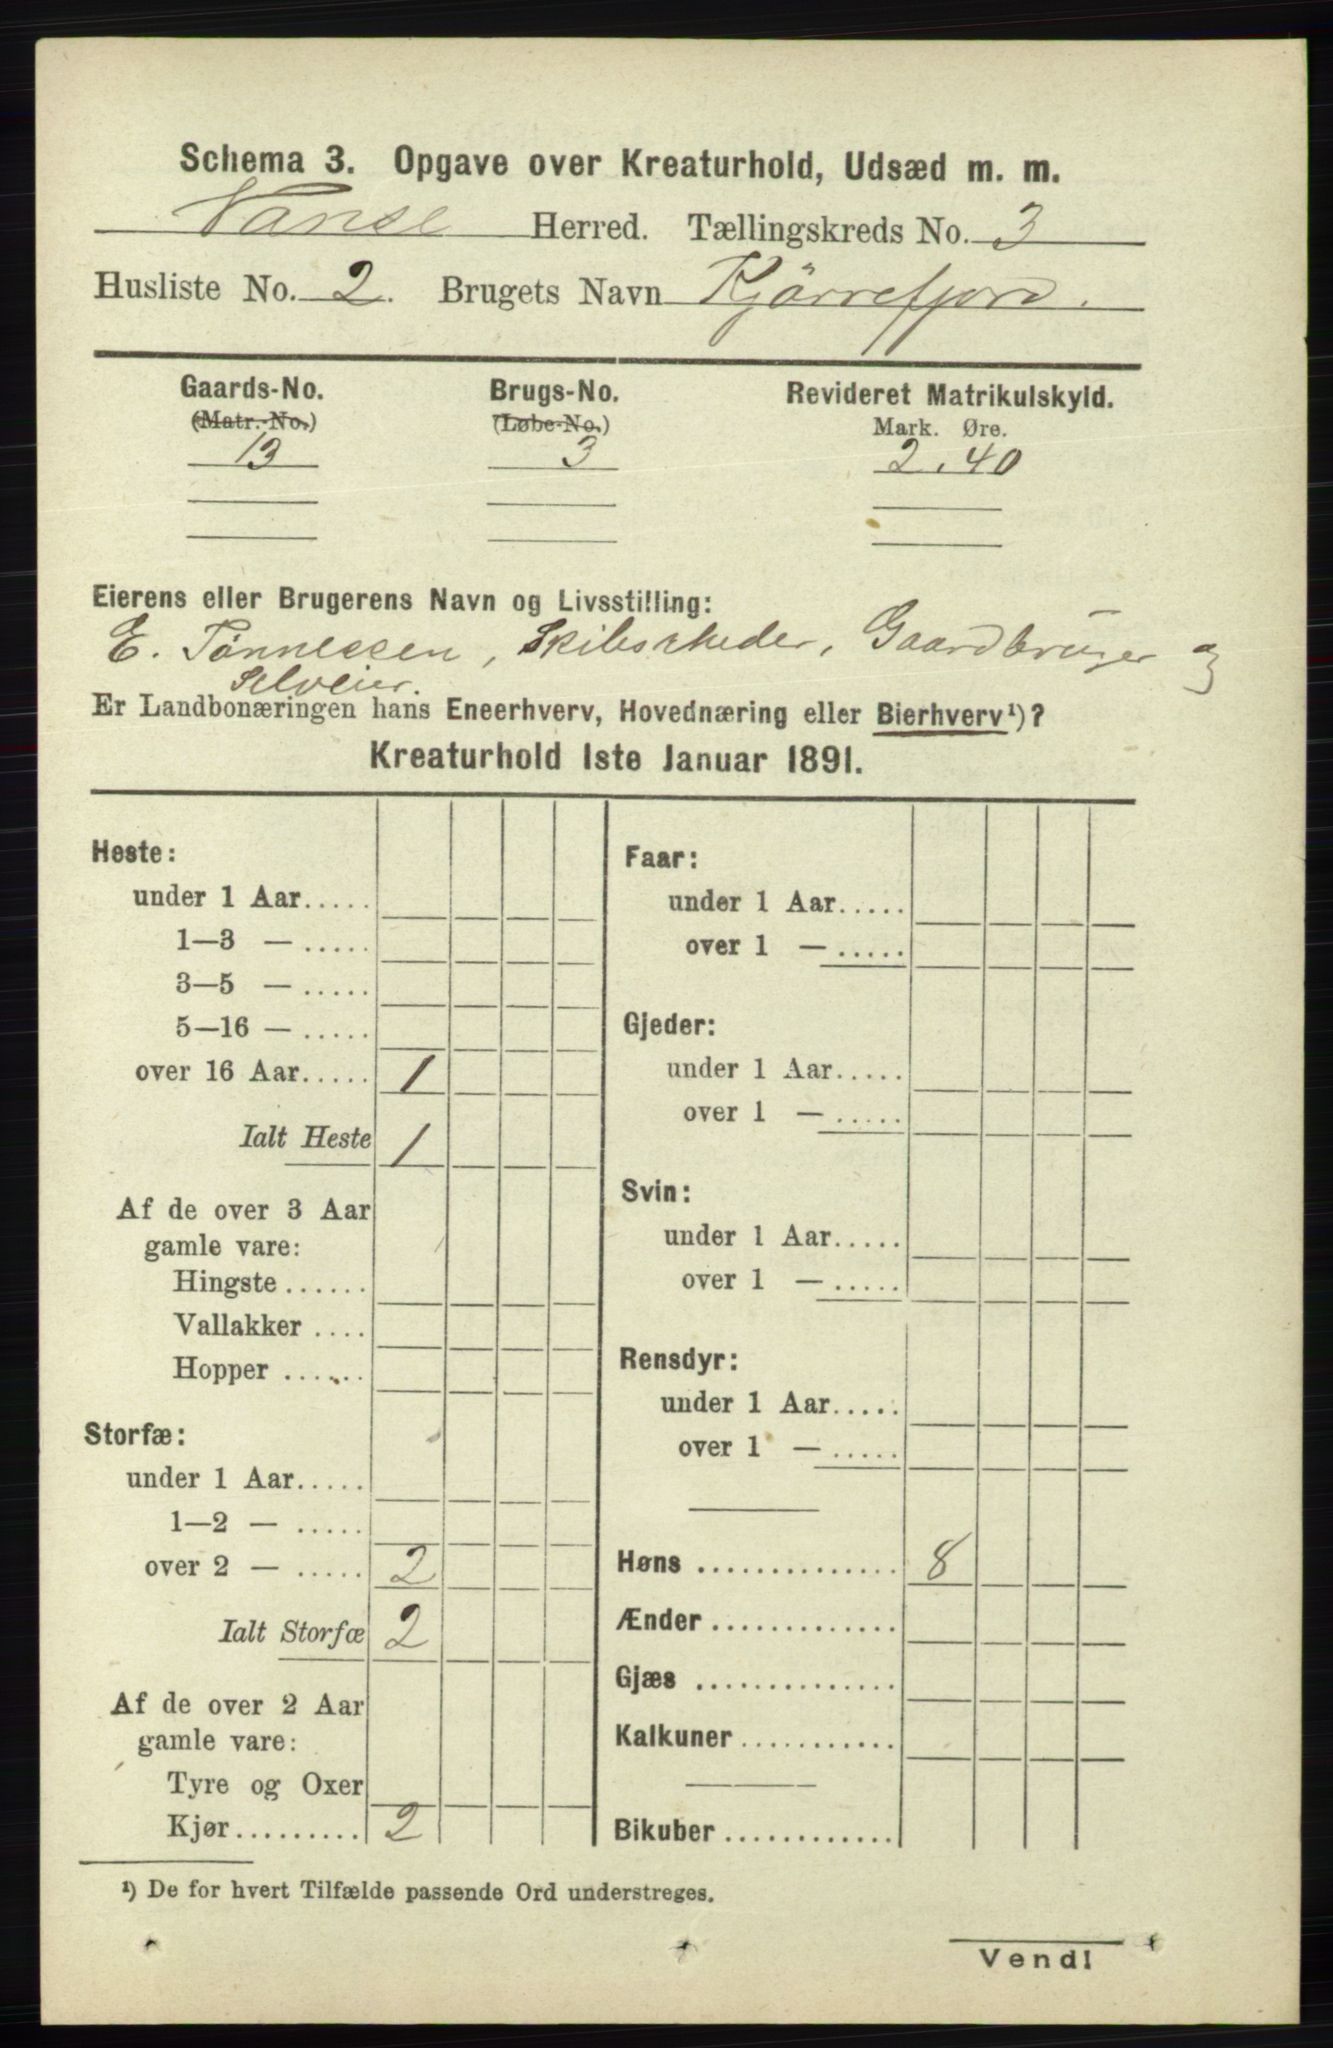 Schema 3. Opgave over Kreaturhold, Udsæd m. m.
Vanse Herred. Tællingskreds No. 3
Husliste No. 2. Brugets Navn Kjörrefjord.
Gaards-No. Brugs-No. Revideret Matrikulskyld.
(Matr.-No.) (Løbe-No.) Mark. Øre.
13 3 2.40
Eierens eller Brugerens Navn og Livsstilling:
E. Tønnessen, Skibsrheder, Gaardbruger og
Selveier.
Er Landbonæringen hans Eneerhverv, Hovednæring eller Bierhverv¹)?
Kreaturhold 1ste Januar 1891.
Heste:
under 1 Aar.....
1—3 — .....
3—5 — .....
5—16 — .....
over 16 Aar..... 1
Ialt Heste 1
Af de over 3 Aar
gamle vare:
Hingste ......
Vallakker ....
Hopper ......
Storfæ:
under 1 Aar.....
1—2 — .....
over 2 — ..... 2
Ialt Storfæ 2
Af de over 2 Aar
gamle vare:
Tyre og Oxer
Kjør......... 2
Faar:
under 1 Aar.....
over 1 — .....
Gjeder:
under 1 Aar.....
over 1 — .....
Svin:
under 1 Aar.....
over 1 — .....
Rensdyr:
under 1 Aar.....
over 1 — .....
Høns .............. 8
Ænder .............
Gjæs ..............
Kalkuner ...........
Bikuber ............
¹) De for hvert Tilfælde passende Ord understreges.
Vend!